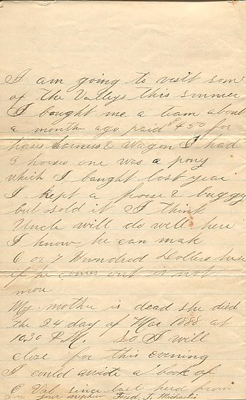 I am going to visit some
of the Valleys this summer
I bought me a team about
a month ago paid $450 for
horses harness & Wagon I had
3 horses one was a pony
which I bought last year
I kept a horse & buggy
but sold it I think
Uncle will do well here
I know he can mak
6 or 7 Hundred Dollars here
if he comes out if not
more
My mother is dead she died
the 24 day of Mar 1888 at
10.30 P.M. So I will
close for this evening
I could write a book of
since last heard from
your nephew Fred